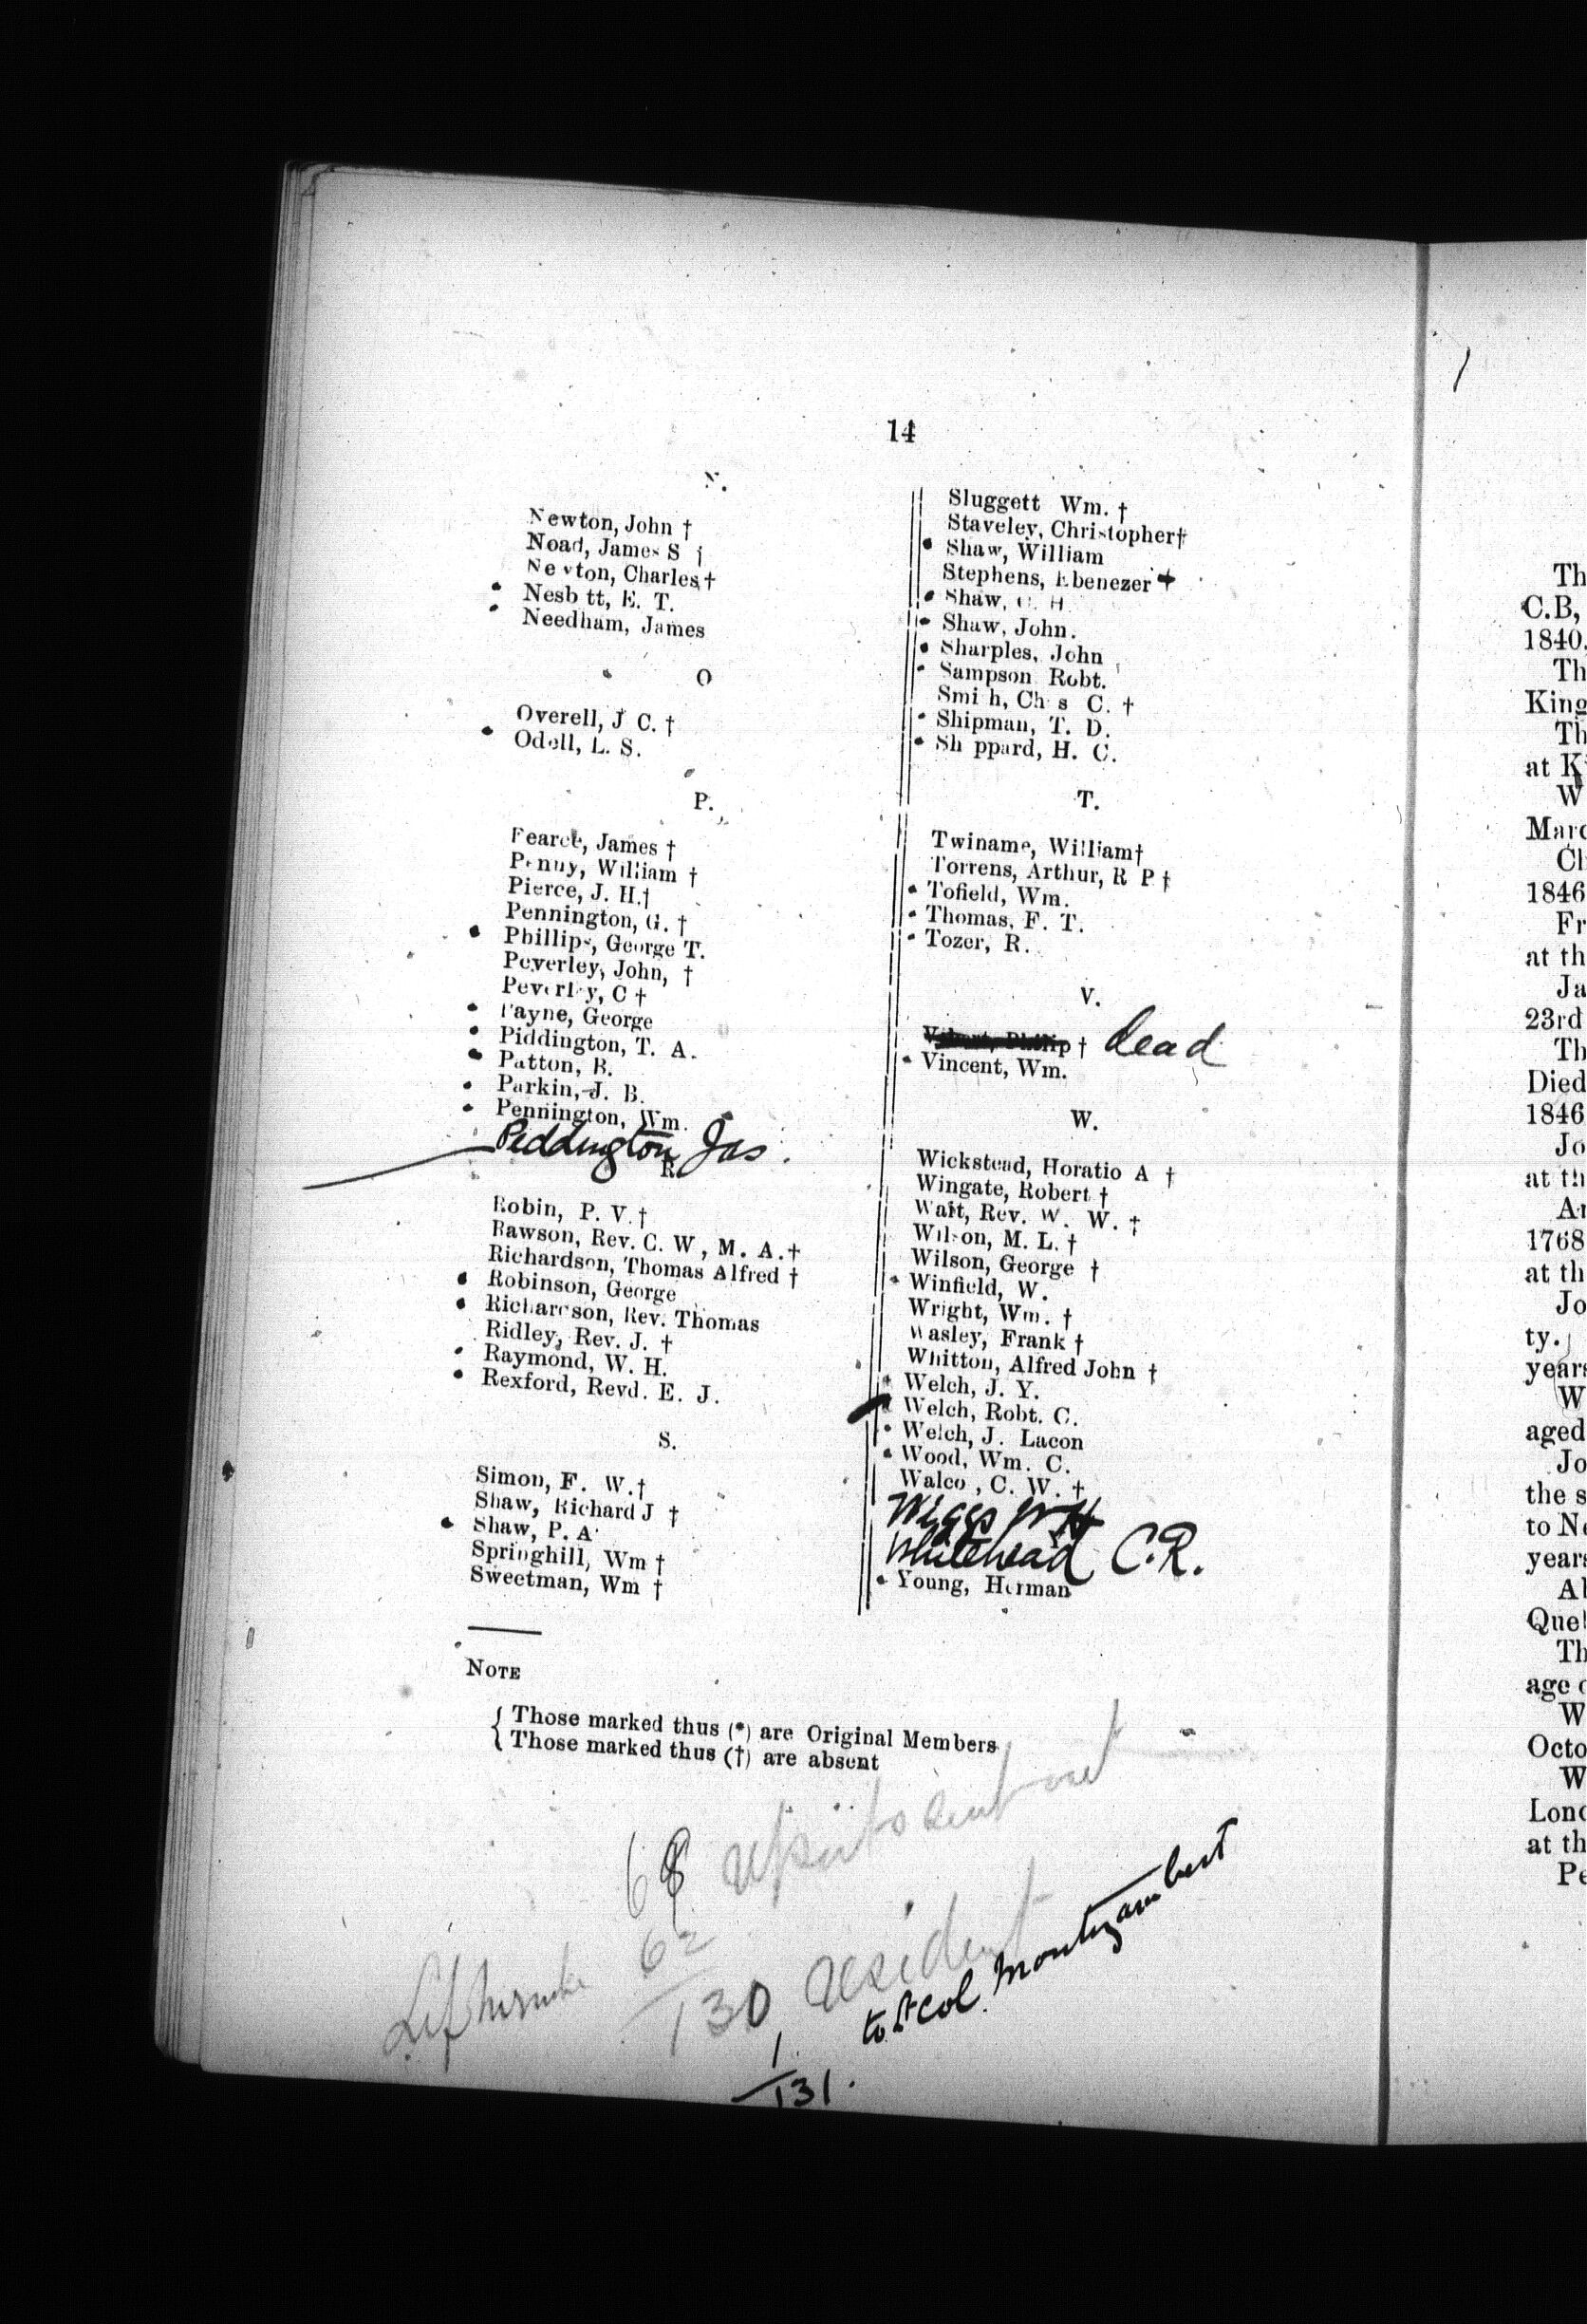 14
N.
Newton, John †
Noad, James S †
Newton, Charles †
• Nesbitt, E. T.
• Needham, James
O
Overell, J C. †
• Odell, L. S.
P.
Pearce, James †
Penny, William †
Pierce, J. H. †
Pennington, G. †
• Phillips, George T.
Peverley, John, †
Peverley, C †
• Payne, George
• Piddington, T. A.
• Patton, B.
• Parkin, J. B.
• Pennington, Wm.
Piddington Jas.
R
Robin, P. V. †
Rawson, Rev. C. W, M. A. †
Richardson, Thomas Alfred †
• Robinson, George
• Richardson, Rev. Thomas
Ridley, Rev. J. †
• Raymond, W. H.
• Rexford, Revd. E. J.
S.
Simon, F. W. †
Shaw, Richard J †
• Shaw, P. A
Springhill, Wm †
Sweetman, Wm †
Sluggett Wm. †
Staveley, Christopher †
• Shaw, William
Stephens, Ebenezer †
• Shaw, C. H
• Shaw, John.
• Sharples, John
• Sampson Robt.
Smi h, Ch s C. †
• Shipman, T. D.
• Sh ppard, H. C.
T.
Twiname, William †
Torrens, Arthur, R P. †
• Tofield, Wm.
• Thomas, F. T.
• Tozer, R.
V.
Vibert, Philip † dead
• Vincent, Wm.
W.
Wickstead, Horatio A †
Wingate, Robert †
Wait, Rev. W. W. †
Wilson, M. L. †
Wilson, George †
• Winfield, W.
Wright, Wm. †
Wasley, Frank †
Whitton, Alfred John †
• Welch, J. Y.
• Welch, Robt. C.
• Welch, J. Lacon
• Wood, Wm. C.
Walco , C. W. †
Wiggs W H
Whitehead C. R.
• Young, Herman
NOTE
{ Those marked thus (*) are Original Members
{ Those marked thus (†) are absent
68 sent out
62 resident
130
to Lt Col. Montizambert
1
131.
Th
C.B,
1840.
Th
King
Th
at K
W
Marc
Cl
1846
Fr
at th
Ja
23rd
Th
Died
1846
Jo
at th
Ar
1768
at th
Jo
ty.
years
W
aged
Jo
the s
to Ne
years
Al
Que
Th
age o
W
Octo
W
Lond
at th
Pe